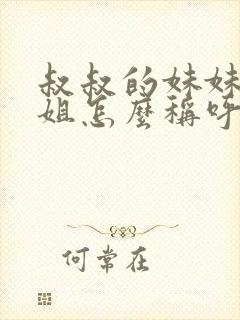 叔叔的妹妹
姐怎麼稱呼
何常在